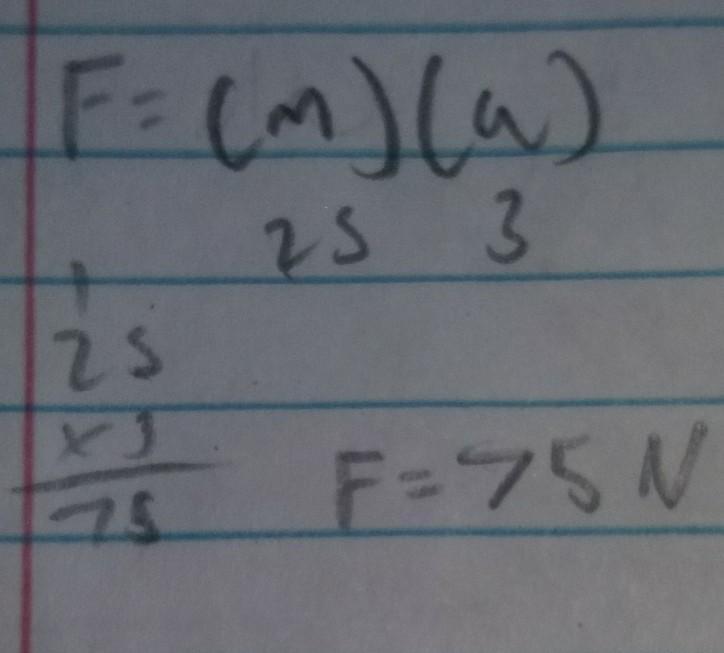 F = (m)(a)
25 3
1
25
x3
75
F = 75 N